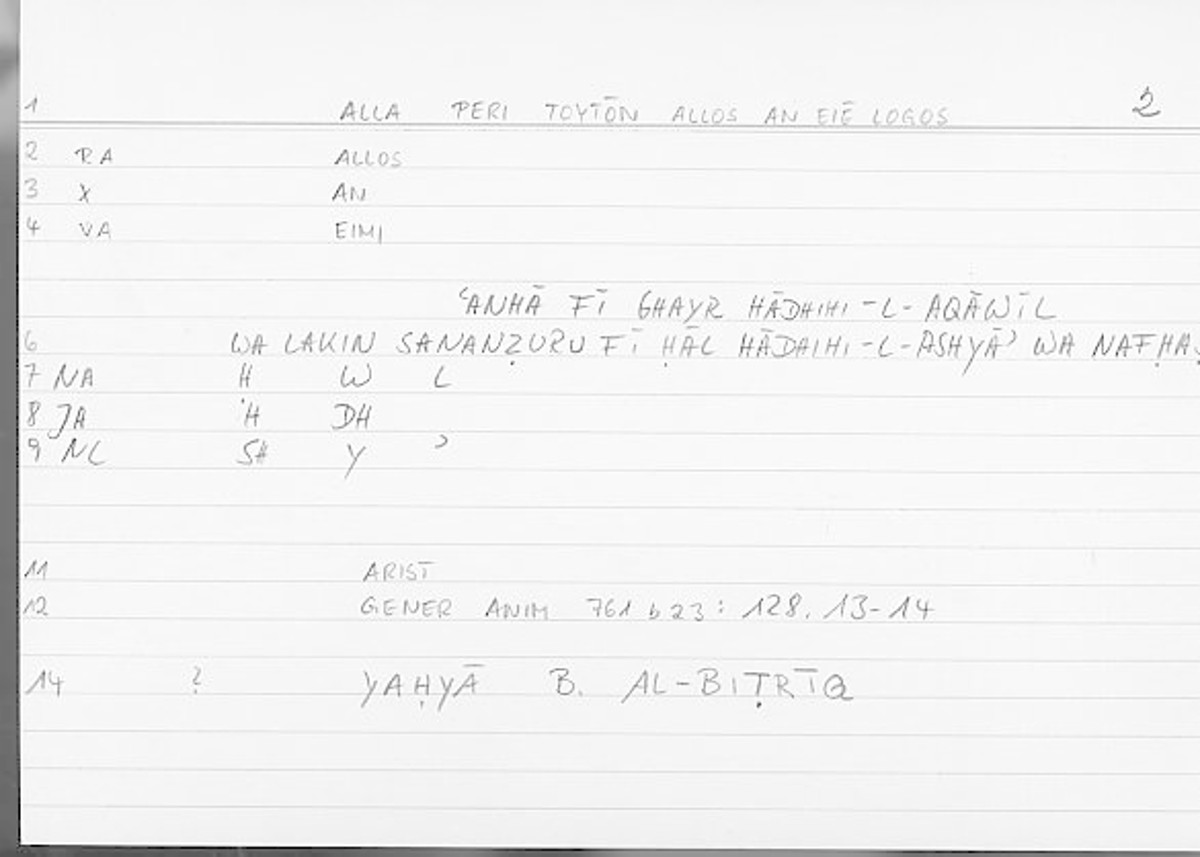 1 ALLA PERI TOYTŌN ALLOS AN EIĒ LOGOS 2
2 RA ALLOS
3 X AN
4 VA EIMI
ʿANHĀ FĪ GHAYR HĀDHIHI-L-AQĀWĪL
6 WA LAKIN SANANẒURU FĪ ḤĀL HĀDHIHI-L-ASHYĀʾ WA NAFḤAṢ
7 NA H W L
8 JA H DH
9 NL SH Y ʾ
11 ARIST
12 GENER ANIM 761 b 23: 128. 13-14
14 ? YAḤYĀ B. AL-BIṬRĪQ